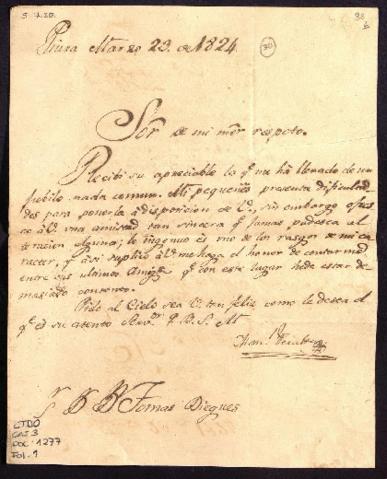 S. 1.20.
30
Piura Marzo 23. de 1824
Sor de mi mor respeto.
Recibi su apreciable la q.e me há llenado de un
jubilo nada comun. Mi pequeñes presenta dificulta-
des para ponerla á disposicion de V., sin embargo
á V. una amistad tan sincera q.e jamas padesca al
teracion alguna; lo ingenuo es uno de los rasgos de mi ca
racter, y asi suplico á V. me haga el honor de contarme
entre sus ultimos Amigos q.e con este lugar
masiado contento.
Pido al Cielo sea V. tan feliz como le desea el
q.e es su atento Serv.or Q. B. S. M.
Man.l
S.r D. D. Tomas Dieguez
CTDO
CAJ 3
DOC: 1277
Fol. 1